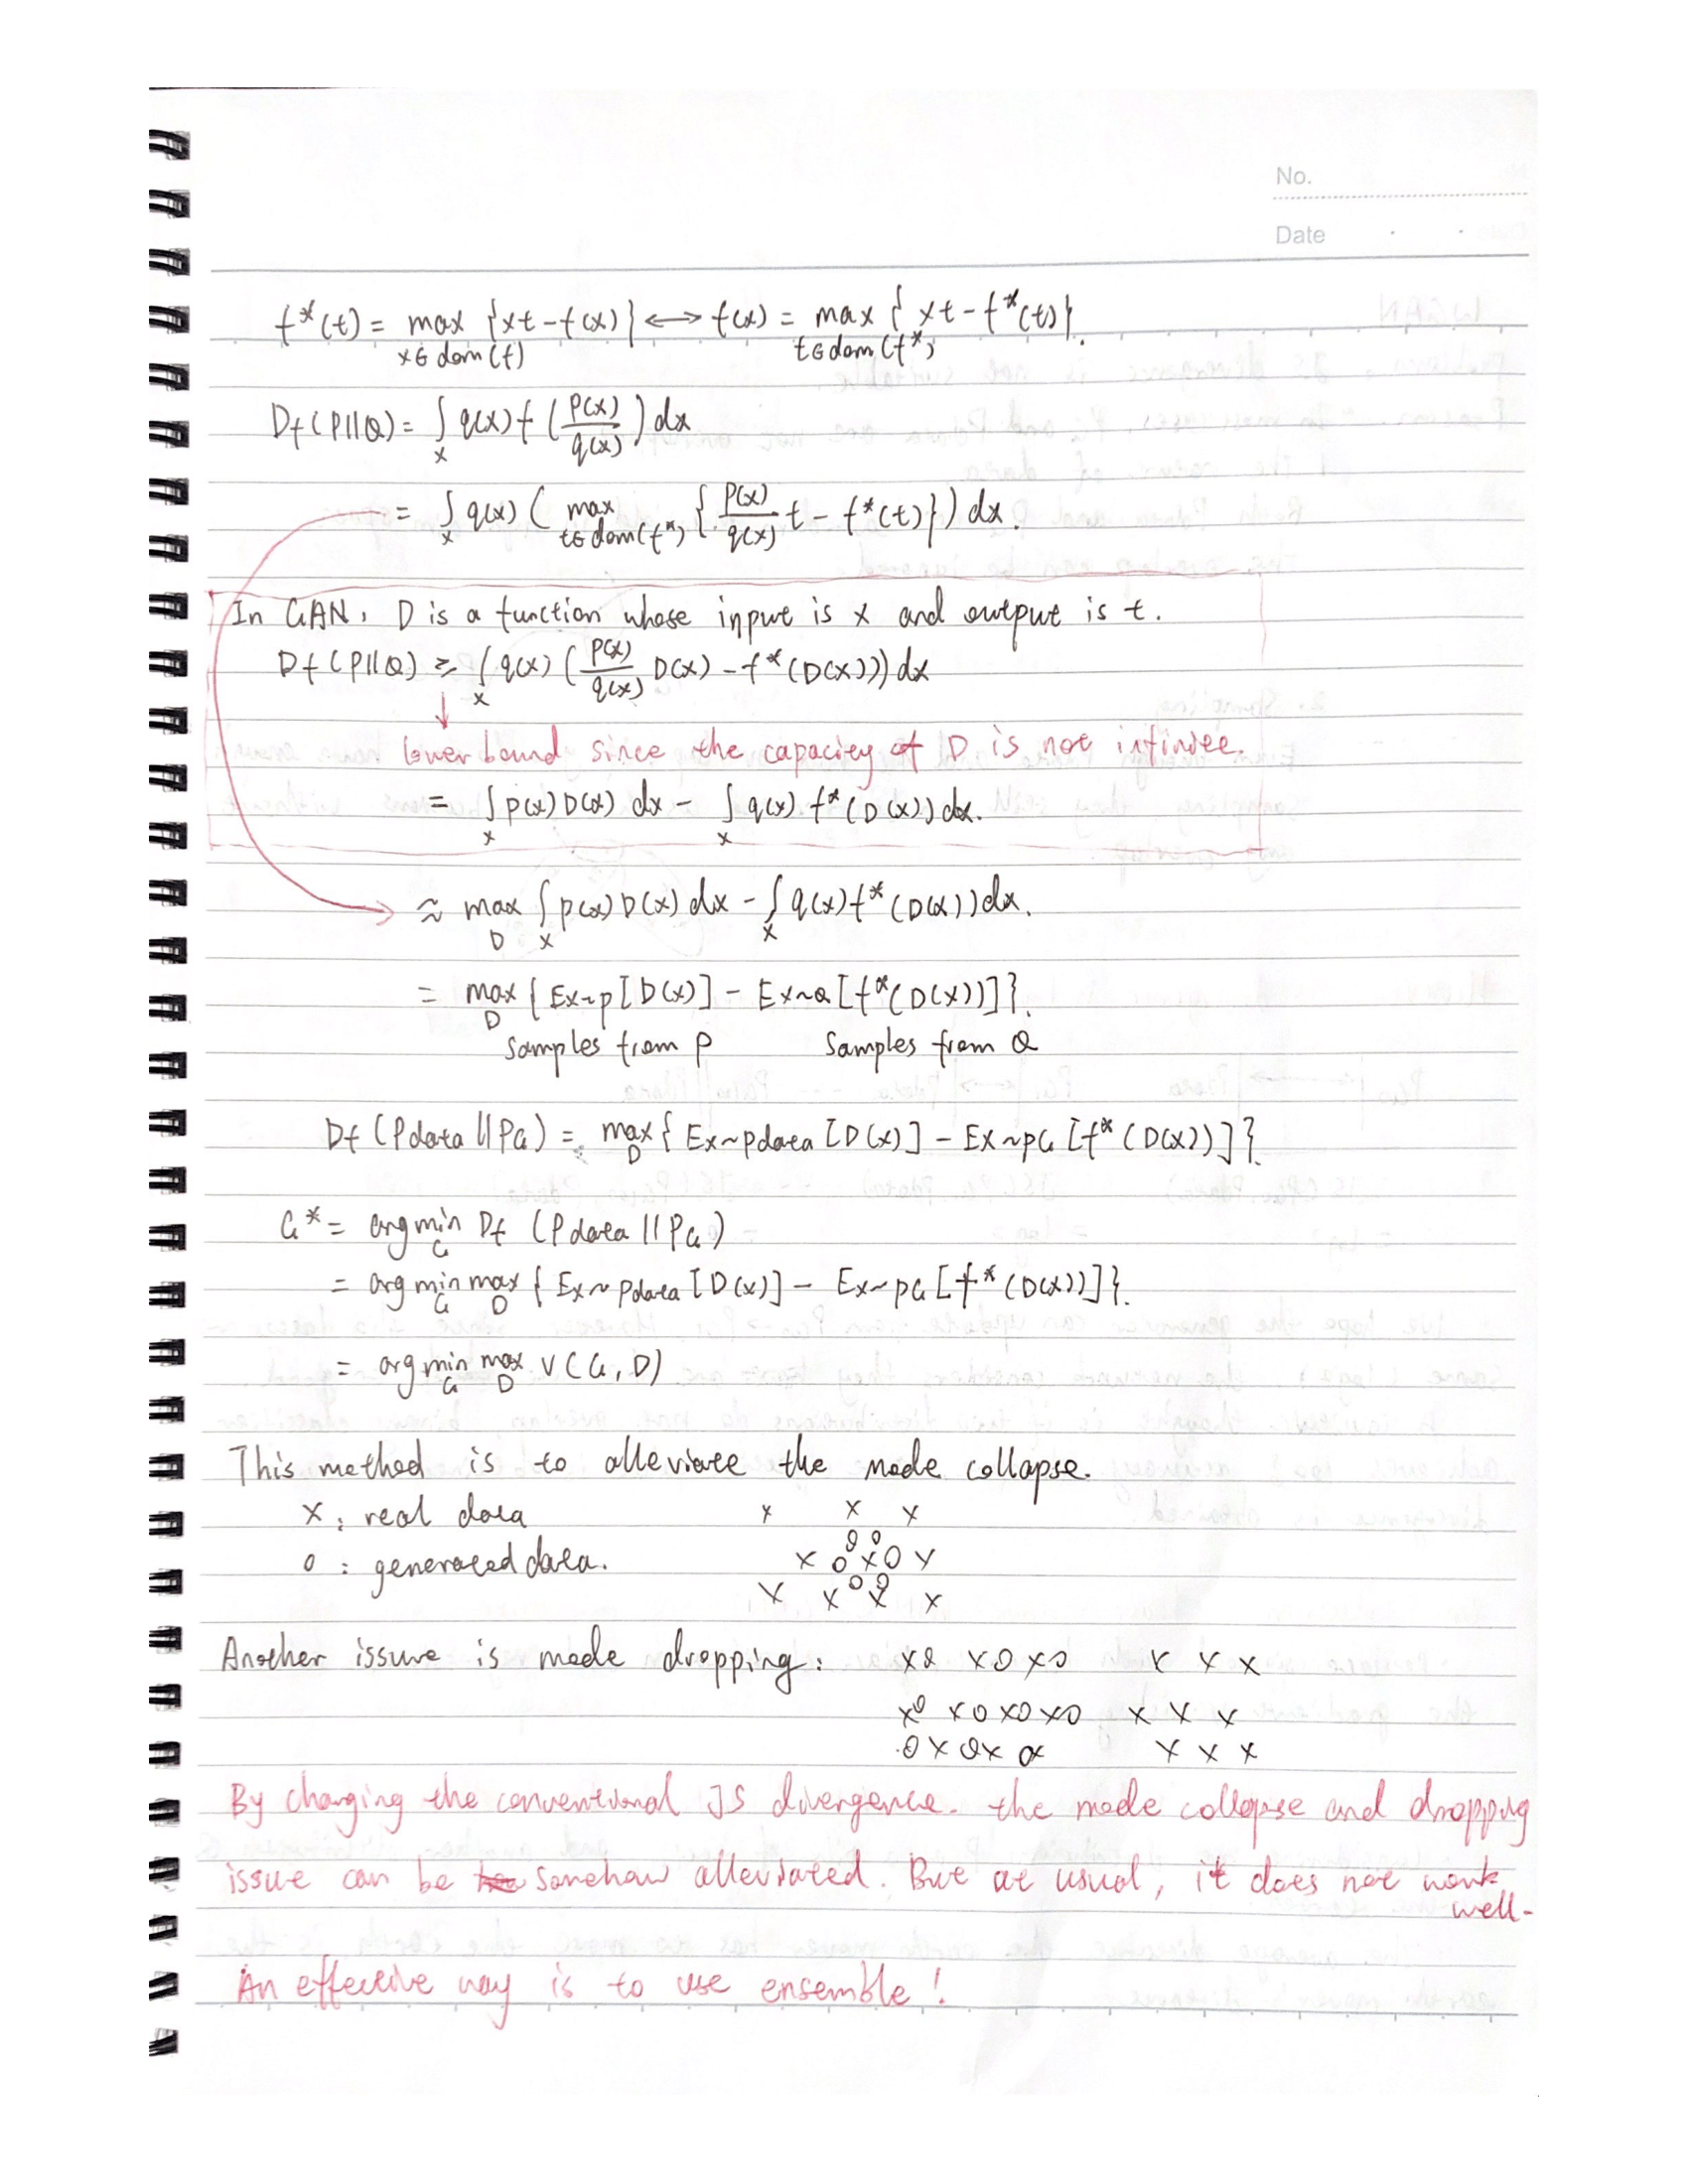 No.
Date
f*(t) = max {xt - f(x)} ⟷ f(x) = max { xt - f*(t)}.
x∈dom(f) t∈dom(f*)
Df(P||Q) = ∫ q(x) f (P(x)/q(x)) dx
x
= ∫ q(x) ( max {P(x)/q(x) t - f*(t)}) dx.
x t∈dom(f*)
In GAN, D is a function whose input is x and output is t.
Df(P||Q) ≥ ∫ q(x) (P(x)/q(x) D(x) - f*(D(x))) dx
x
↓
lower bound since the capacity of D is not infinite.
= ∫ p(x) D(x) dx - ∫ q(x) f*(D(x)) dx.
x x
≈ max ∫ p(x) D(x) dx - ∫ q(x) f*(D(x)) dx.
D x x
= max { Ex~p [D(x)] - Ex~Q [f*(D(x))] }.
D
Samples from P Samples from Q
Df (Pdata || PG) = max { Ex~pdata [D(x)] - Ex~pG [f*(D(x))] }.
D
G* = arg min Df (Pdata || PG)
G
= arg min max { Ex~Pdata [D(x)] - Ex~pG [f*(D(x))] }.
G D
= arg min max V(G, D)
G D
This method is to alleviate the mode collapse.
x : real data x x x
o o
o : generated data. x o x o x
o o
x x x x
Another issure is mode dropping: xo xo xo x x x
xo xo xo xo x x x
ox ox ox x x x
By changing the conventional JS divergence. the mode collapse and dropping
issue can be somehow alleviated. But at usual, it does not work
well.
An effective way is to use ensemble !